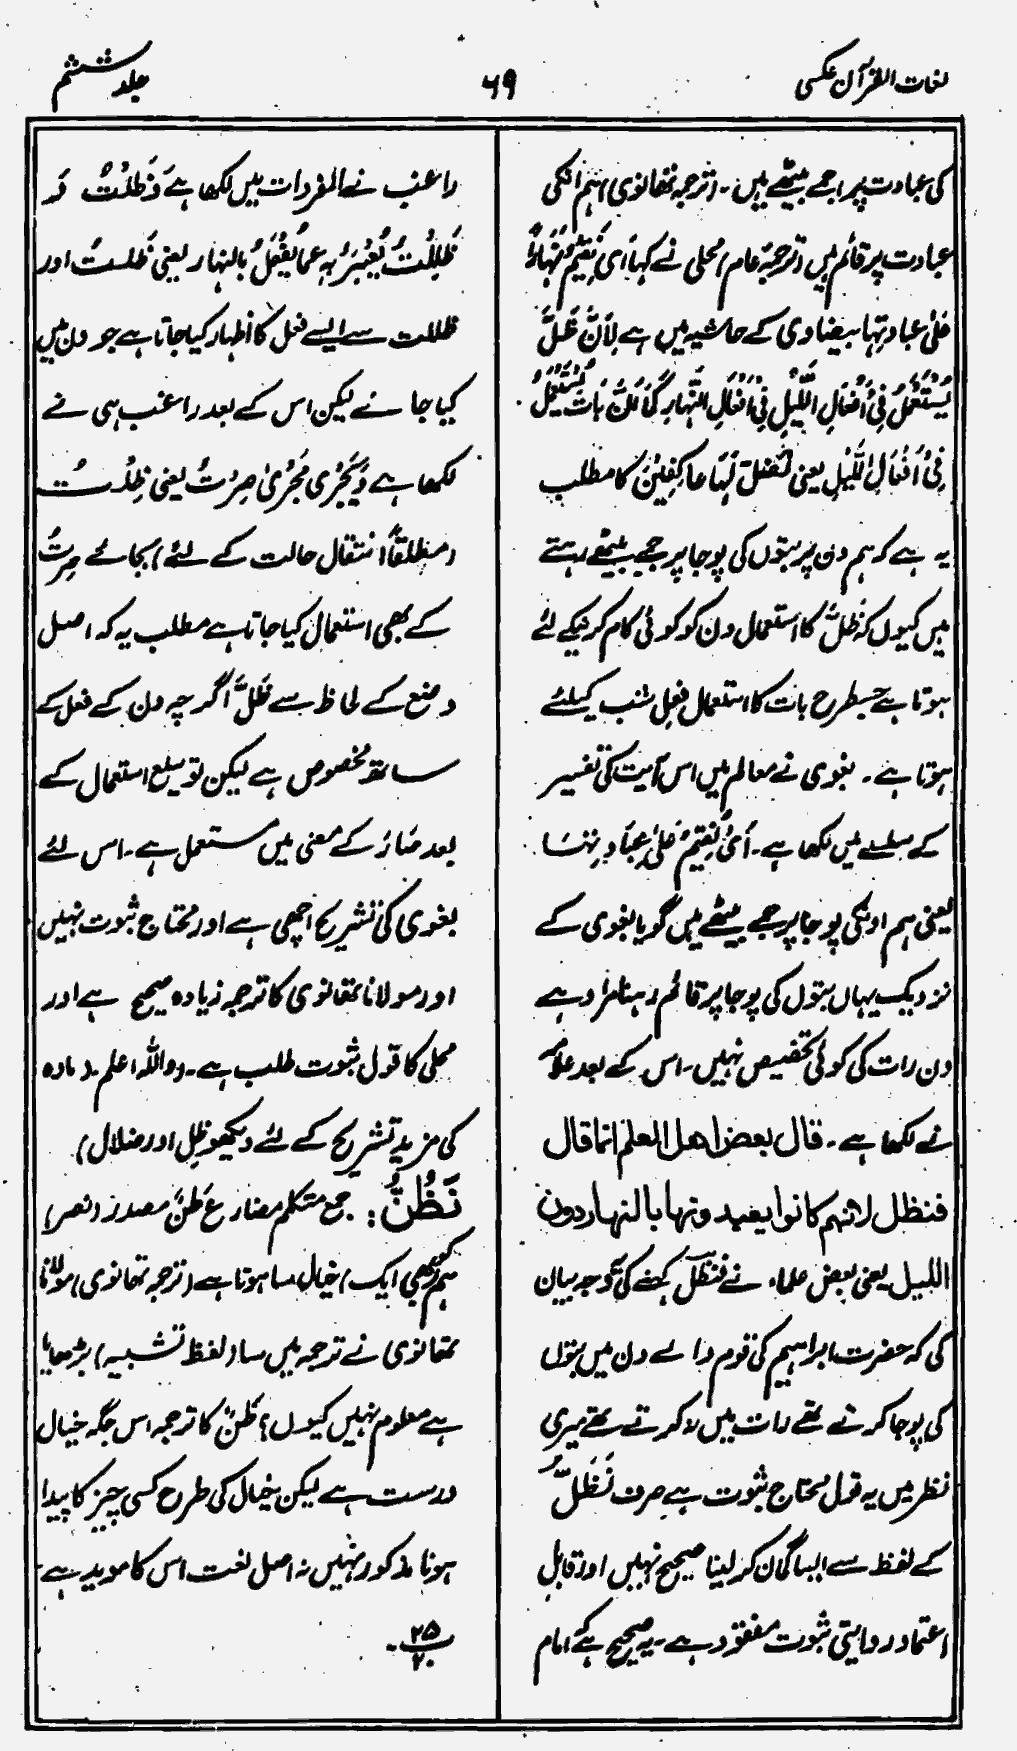 لغات القرآن عکسی
۶۹
جلد ششم
کی عبادت پر اجمے بیٹھے ہیں۔ (ترجمہ تھانوی) ہم انکی
عبادت پر قائم ہیں (ترجمۂ عام) محلی نے کہا ای نُقِیْمُ نَہَارًا
عَلیٰ عِبادتِہا بیضاوی کے حاشیہ میں ہے لِاَنَّ ظَلَّ
یُسْتَعْمَلُ فِیْ اَفْعَالِ اللَّیْلِ فِیْ اَفْعَالِ النَّہَارِ کَمَا اَنَّ بَاتَ یُسْتَعْمَلُ
فِیْ اَفْعَالِ اللَّیْلِ یعنی نَظَلُّ لَہَا عَاکِفِیْنَ کا مطلب
یہ ہے کہ ہم دن پر بتوں کی پوجا پر جمے بیٹھے رہتے
ہیں کیوں کہ ظَلَّ کا استعمال دن کو کوئی کام کرنیکے لئے
ہوتا ہے جسطرح بات کا استعمال فعل شب کیلئے
ہوتا ہے۔ بغوی نے معالم میں اس آیت کی تفسیر
کے سلسلے میں لکھا ہے۔ اَیْ نُقِیْمُ عَلیٰ عِبَادَتِہَا
یعنی ہم اونکی پوجا پر جمے بیٹھے ہیں گویا بغوی کے
نزدیک یہاں بتوں کی پوجا پر قائم رہنا مراد ہے
دن رات کی کوئی تخصیص نہیں۔ اس کے بعد علامہ
نے لکھا ہے۔ قال بعض اهل العلم انما قال
فنظل لانهم كانوا يعبدونها بالنهار دون
الليل یعنی بعض علماء نے فنظل کہنے کی توجہ بیان
کی کہ حضرت ابراہیم کی قوم والے دن میں بتوں
کی پوجا کرتے تھے رات میں نہ کرتے تھے میری
نظر میں یہ قول محتاج ثبوت ہے صرف نَظَلُّ
کے لفظ سے ایسا گمان کر لینا صحیح نہیں اور قابل
اعتماد روایتی ثبوت مفقود ہے۔ یہ صحیح ہے کہ امام
راغب نے المفردات میں لکھا ہے وَظَلْتُ وَ
ظَلِلْتُ یُعَبَّرُ بِہٖ عَمَّا یُفْعَلُ بالنہار یعنی ظَلْتُ اور
ظللت سے ایسے فعل کا اظہار کیا جاتا ہے جو دن میں
کیا جائے لیکن اس کے بعد راغب ہی نے
لکھا ہے وَیَجْرِی مَجْرٰی صِرْتُ یعنی ظَلْتُ
(مطلقًا انتقال حالت کے لئے) بجائے صِرتُ
کے بھی استعمال کیا جاتا ہے مطلب یہ کہ اصل
وضع کے لحاظ سے ظَلَّ اگرچہ دن کے فعل کے
ساتھ مخصوص ہے لیکن توسیع استعمال کے
بعد صَارَ کے معنی میں مستعمل ہے۔ اس لئے
بغوی کی تشریح اچھی ہے اور محتاج ثبوت نہیں
اور مولانا تھانوی کا ترجمہ زیادہ صحیح ہے اور
محلی کا قول ثبوت طلب ہے۔ واللہ اعلم۔ (مادہ
کی مزید تشریح کے لئے دیکھو ظِل اور ضلال)
نَظُنُّ : جمع متکلم مضارع ظَنَّ مصدر (نصر)
ہم کو بھی (ایک) خیال سا ہوتا ہے (ترجمہ تھانوی) مولانا
تھانوی نے ترجمہ میں سا (لفظ تشبیہ) بڑھایا
ہے معلوم نہیں کیوں؟ ظَنّ کا ترجمہ اس جگہ خیال
درست ہے لیکن خیال کی طرح کسی چیز کا پیدا
ہونا مذکور نہیں نہ اصل لغت اس کا موید ہے۔
پ ۲۵/۲۰